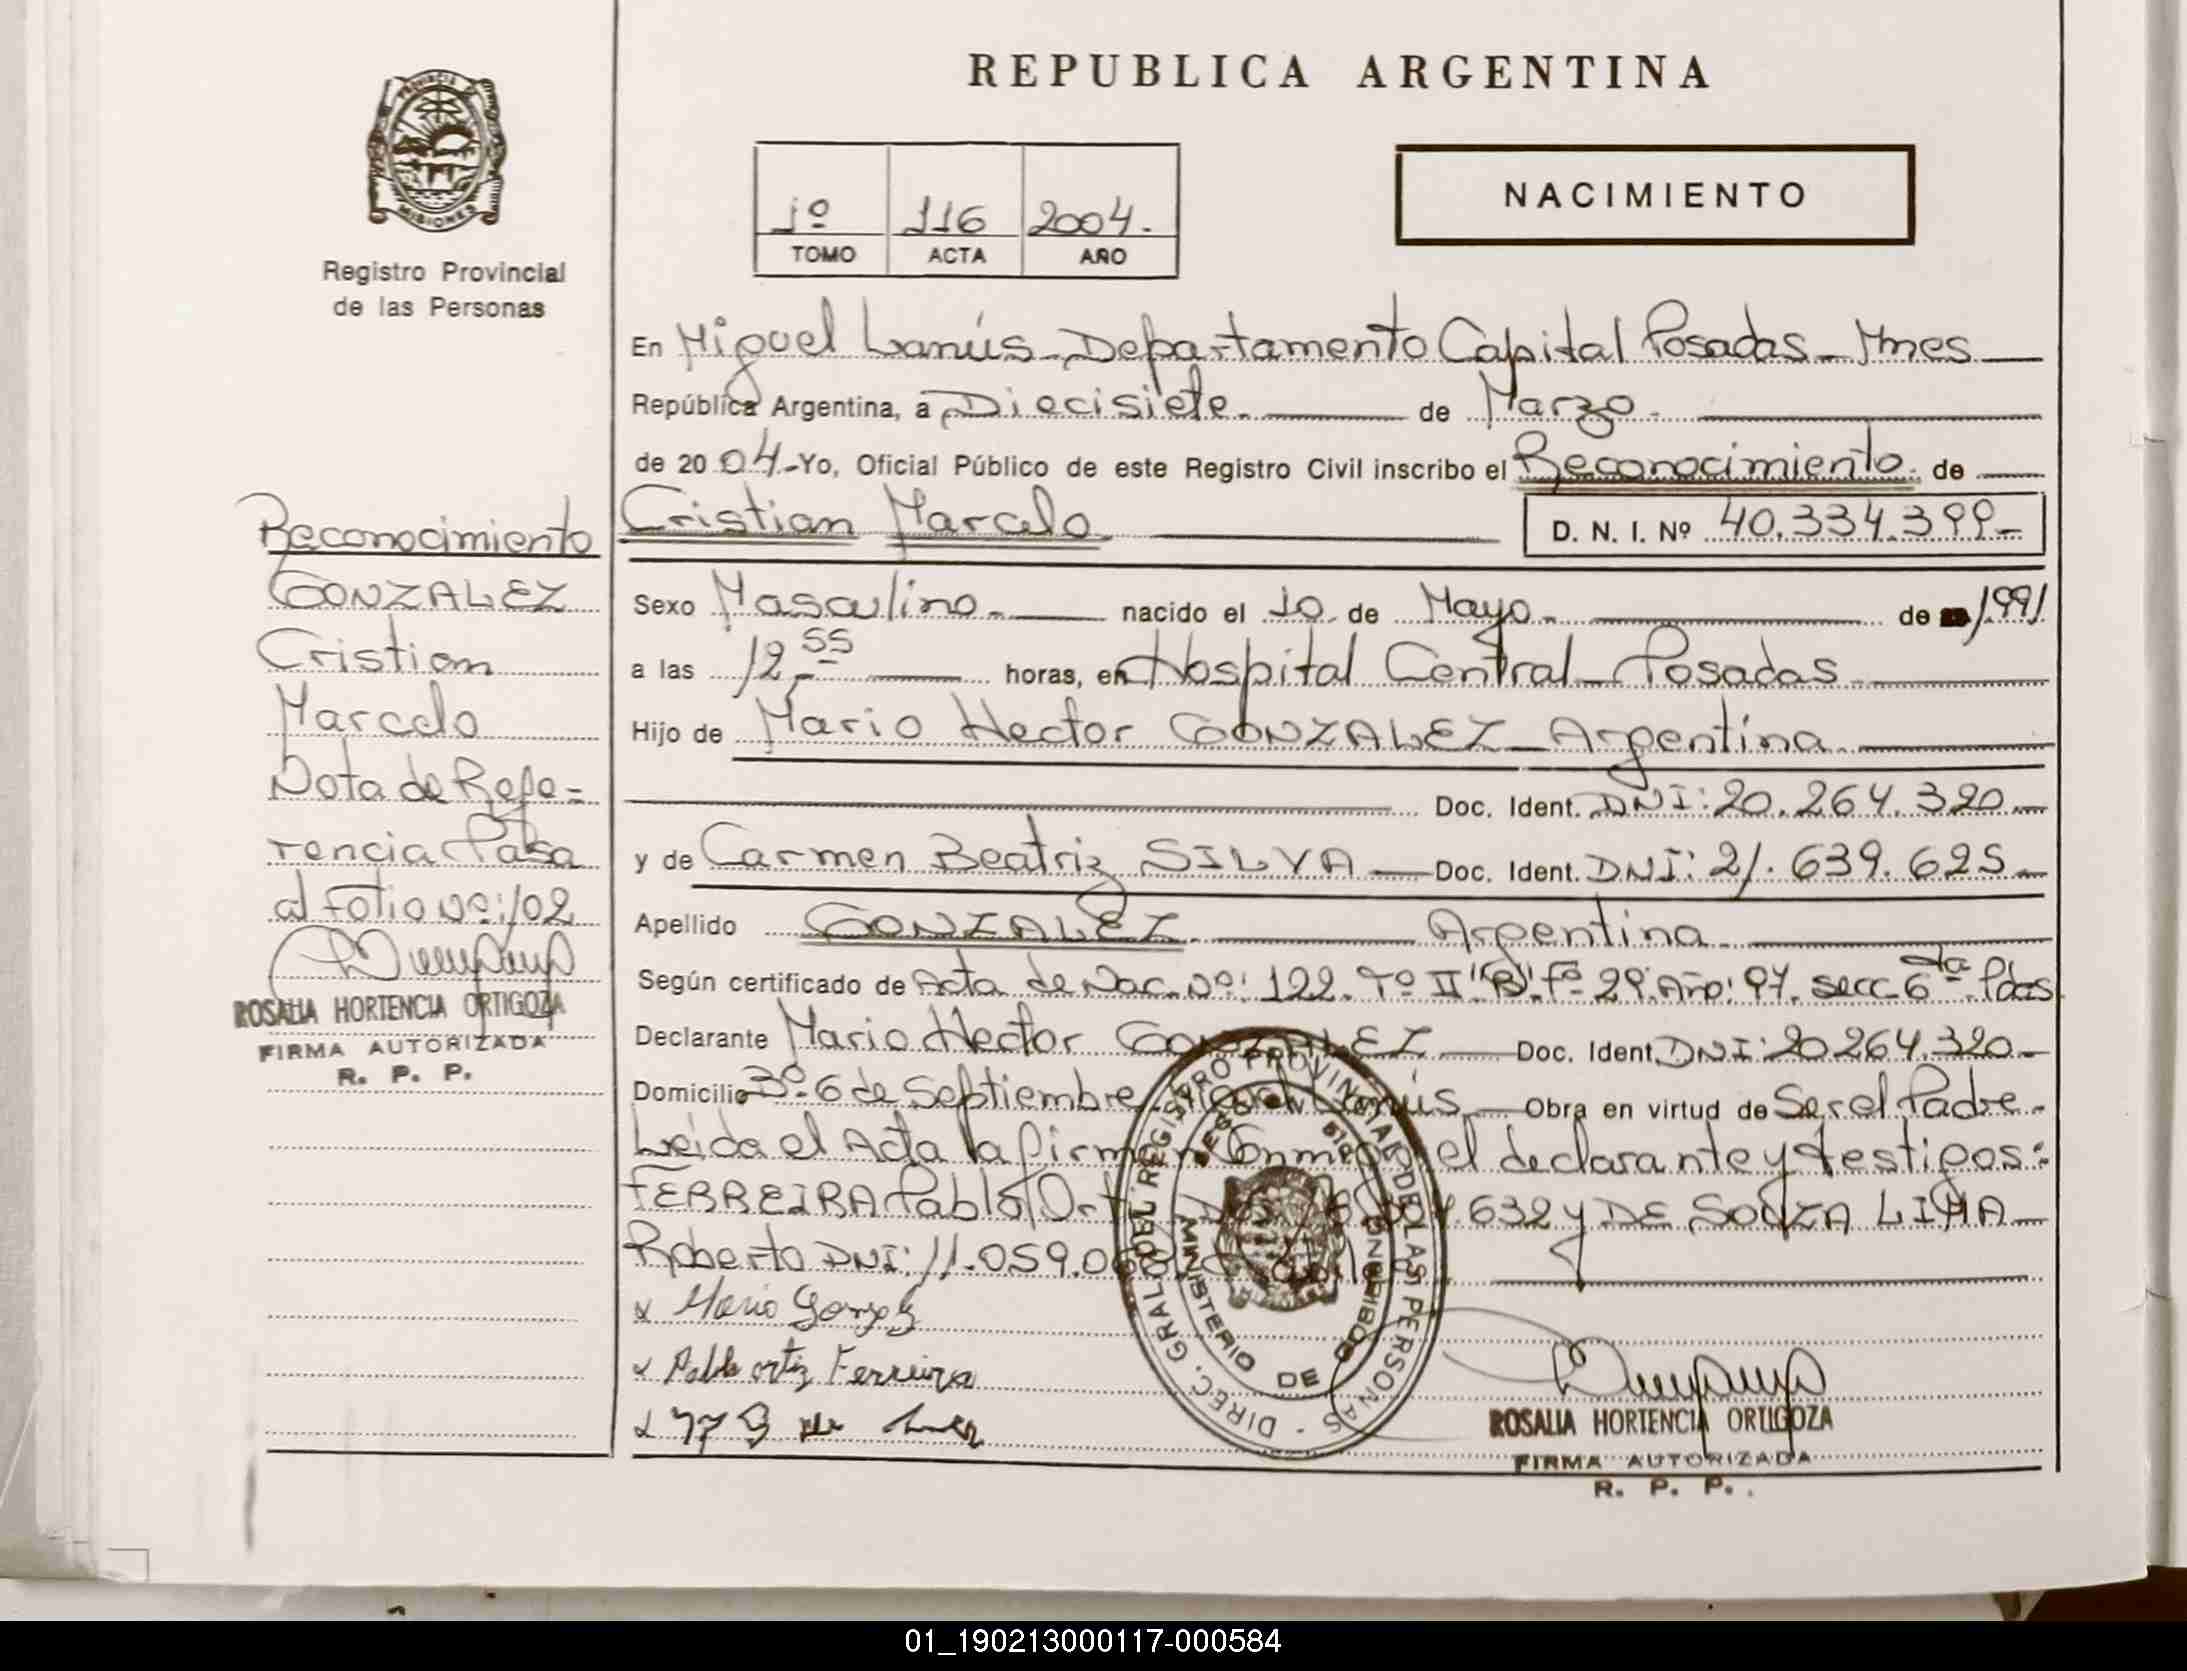 REPUBLICA ARGENTINA
PROVINCIA DE MISIONES
Registro Provincial
de las Personas
1º 116 2004.
TOMO ACTA AÑO
NACIMIENTO
En Miguel Lanús - Departamento Capital Posadas - Mnes
República Argentina, a Diecisiete. de Marzo.
de 2004.- Yo, Oficial Público de este Registro Civil inscribo el Reconocimiento. de
Cristian Marcelo D. N. I. Nº 40.334.399-
Sexo Masculino.- nacido el 10 de Mayo. de 1991
a las 12 55 horas, en Hospital Central - Posadas
Hijo de Mario Hector GONZALEZ - Argentina
Doc. Ident. DNI: 20.264.320
y de Carmen Beatriz SILVA Doc. Ident. DNI: 21.639.625
Apellido GONZALEZ. Argentina
Según certificado de Acta de Nac. Nº: 122. Tº II "B". Fº 29. Año: 97. secc. 6ta Pdas
Declarante Mario Hector GONZALEZ Doc. Ident. DNI: 20.264.320-
Domicilio 6 de Septiembre Lanús Obra en virtud de Ser el Padre.
Leida el Acta la firman Conmigo el declarante y testigos:
FERREIRA Pablo 632 y DE SOUZA LIMA
Roberto DNI: 11.059.0
Mario Gonzalez
Pablo ortiz Ferreira
Reconocimiento
GONZALEZ
Cristian
Marcelo
Nota de Refe=
rencia Pasa
al folio Nº: 102
ROSALIA HORTENCIA ORTIGOZA
FIRMA AUTORIZADA
R. P. P.
DIREC. GRAL. DEL REGISTRO PROVINCIAL DE LAS PERSONAS -
MINISTERIO DE GOBIERNO
ROSALIA HORTENCIA ORTIGOZA
FIRMA AUTORIZADA
R. P. P.
01_190213000117-000584